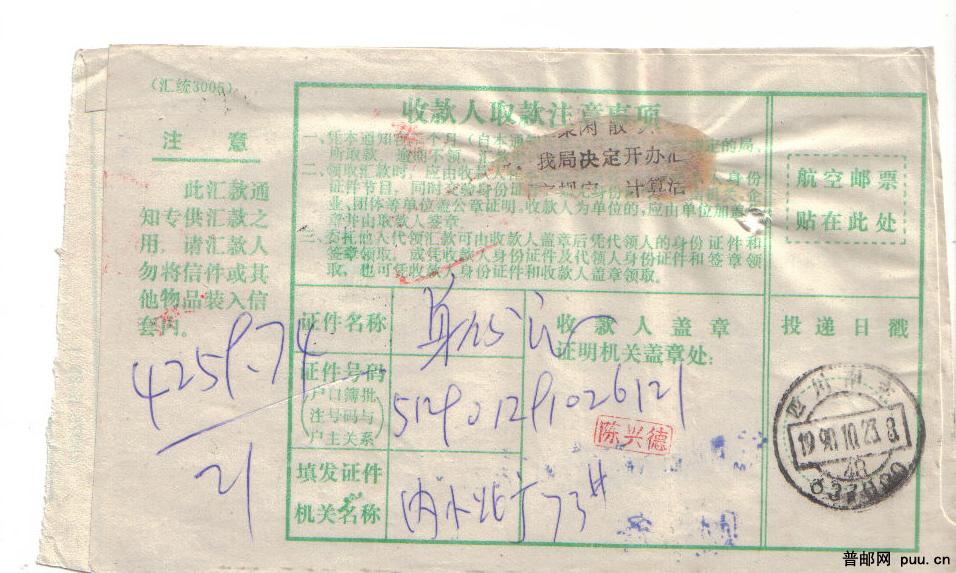 (汇统3005)
注意
此汇款通
知专供汇款之
用,请汇款人
勿将信件或其
他物品装入信
套内。
收款人取款注意事项
一、凭本通知
个月(自本通
的局,
所取款
逾期不领,汇
我局决定开办汇
计算活
二、领取汇款时,应由收款人
身份
证件节目,同时交验身份证件
业、团体等单位盖公章证明,收款人为单位的,应由单位加盖
章并由取款人签章。
三、委托他人代领汇款可由收款人盖章后凭代领人的身份证件和
签章领取,或凭收款人身份证件及代领人身份证件和签章领
取,也可凭收款人身份证件和收款人盖章领取。
航空邮票
贴在此处
证件名称
身份证
收款人盖章
证明机关盖章处:
投递日戳
证件号码
(户口簿批
注号码与
户主关系)
512901291026121
陈兴德
填发证件
机关名称
4259.74
21
四川南充
1990.10.23.8
48
普邮网 puu.cn